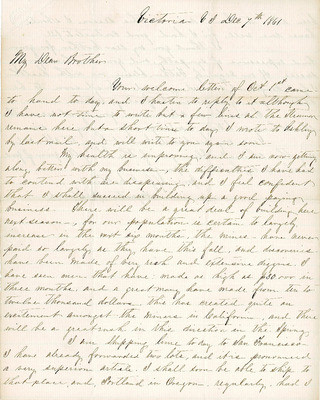 Victoria V I Dec 7th 1861
My Dear Brother
Your welcome letter of Oct 1st came
to hand to day, and I hasten to reply to it although
I have not time to write but a few lines as the Steamer
remains here but a short time to day, I wrote to
by last mail, and will write to you again soon.
My health is improving, and I am now getting
along better with my business, the difficulties I have had
to contend with are disappearing, and I feel confident
that I shall succeed in building up a good paying
business. There will be a great deal of building here
next season, for our population is certain to largely
increase in the next six months. the mines have never
paid so largely as they have this fall, and discoveries
have been made of very rich and extensive diggins. I
have seen men that have made as high as $30.000 in
three months, and a great many have made from ten to
twelve thousand dollars. this has created quite an
excitement amongst the miners in California, and there
will be a great rush in this direction in the Spring.
I am shipping lime to day to San Francisco
I have already forwarded two lots, and it is pronounced
a very superior article. I shall soon be able to ship to
that place, and Portland in Oregon, regularly, had I